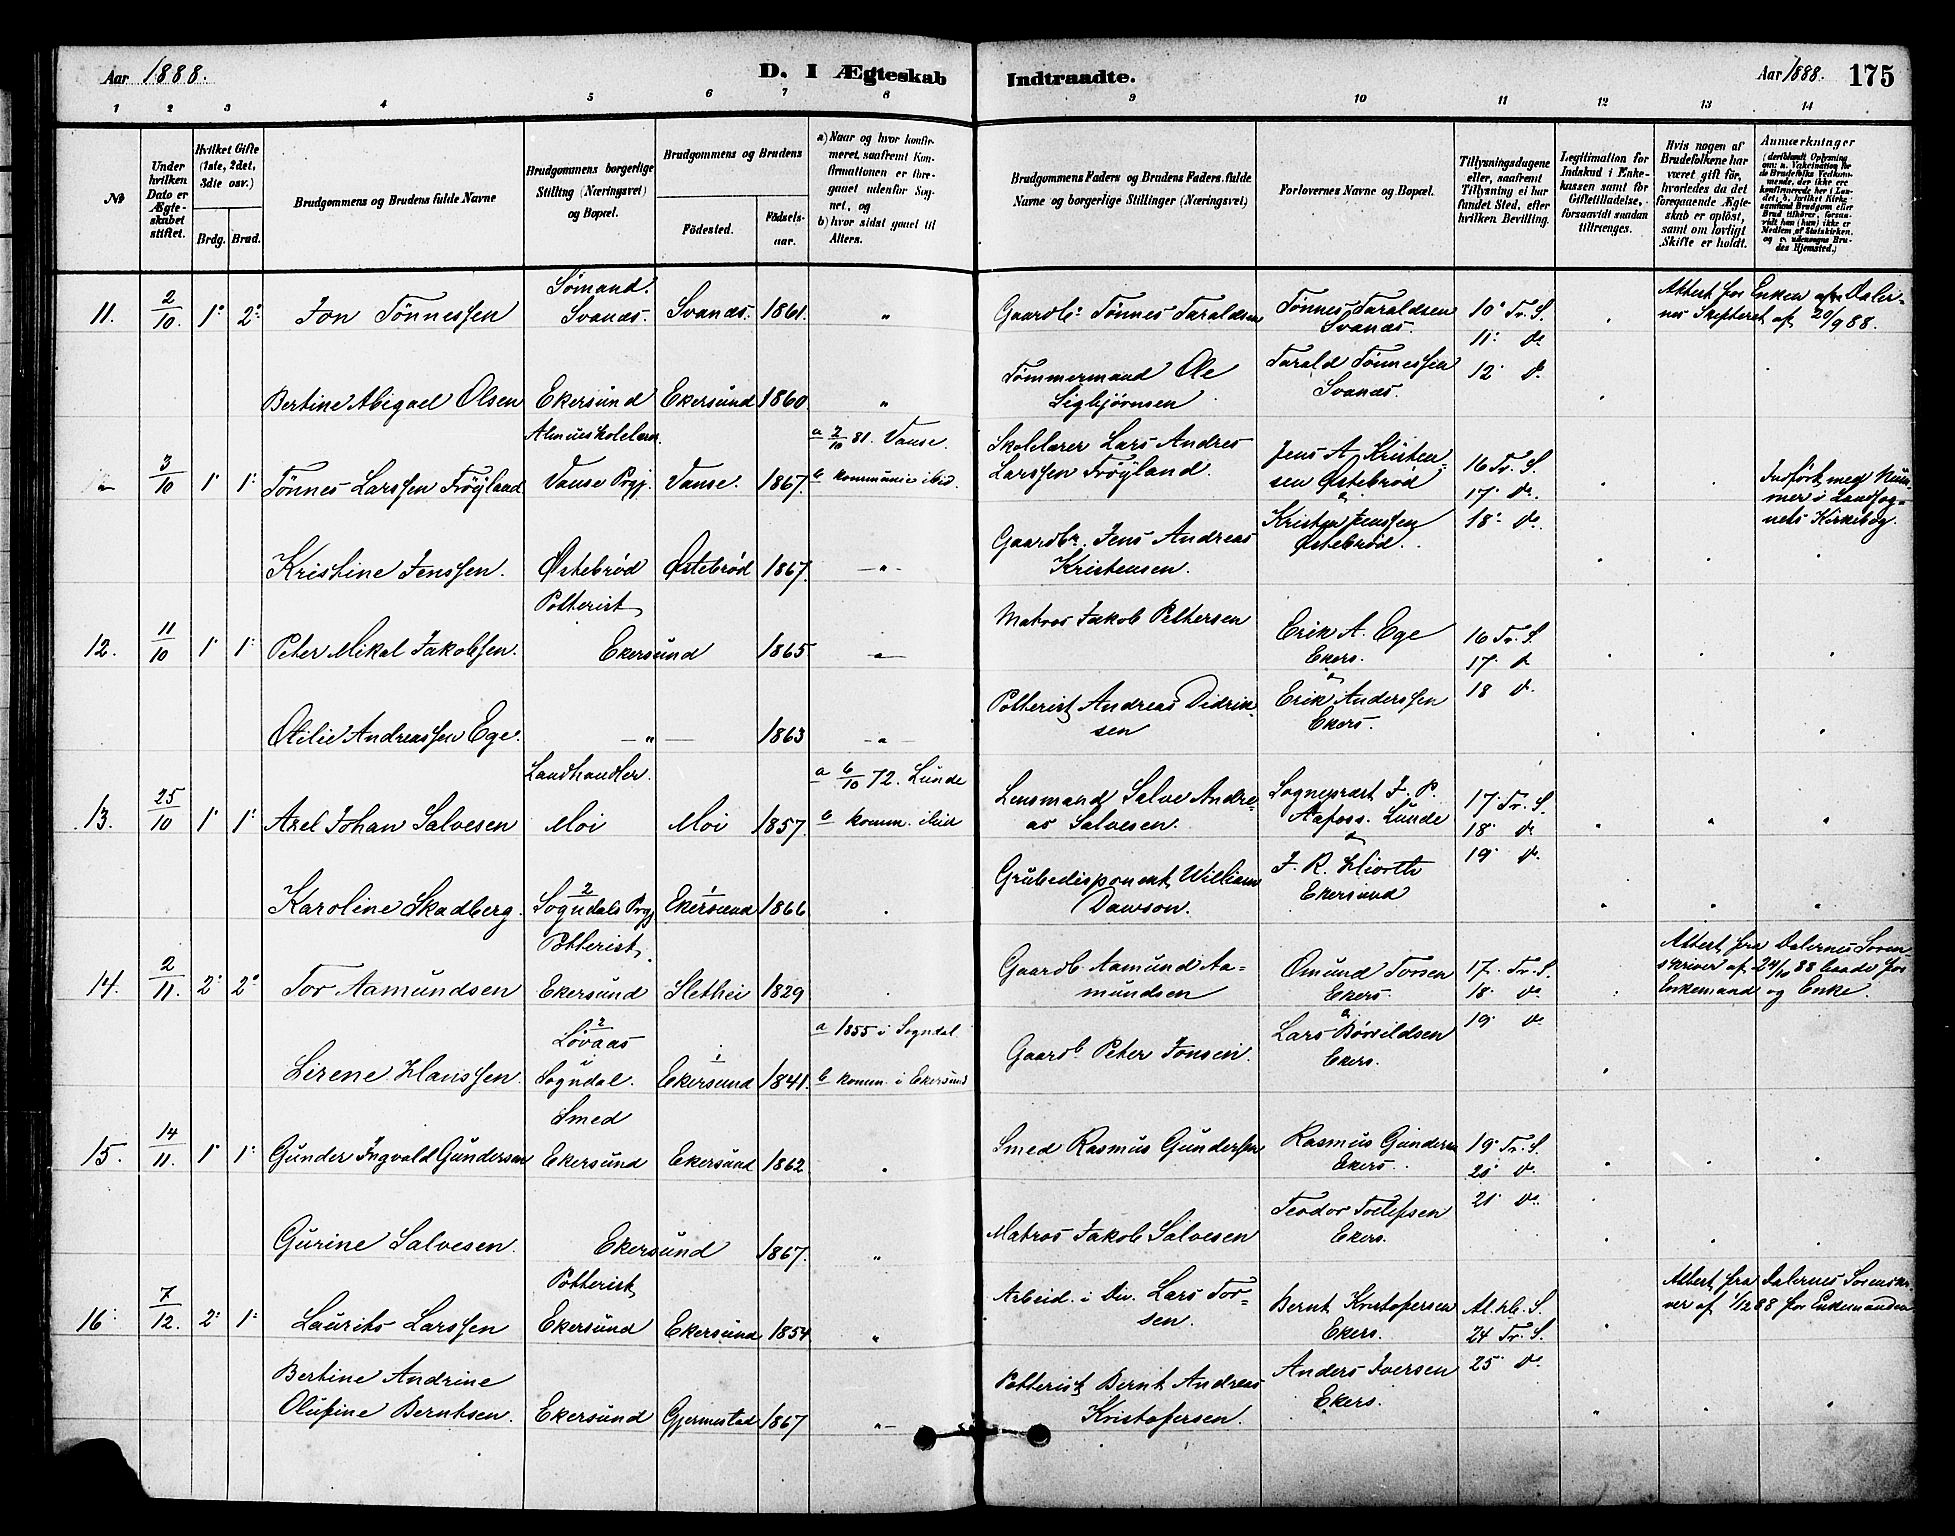 Aar 1888.
D. I Ægteskab
Indtraadte.
Aar 1888. 175
1 2 3 4 5 6 7 8 9 10 11 12 13 14
№
Under hvilken Dato er Ægteskabet stiftet.
Hvilket Gifte (1ste, 2det, 3die osv.)
Brdg. Brud.
Brudgommens og Brudens fulde Navne
Brudgommens borgerlige Stilling (Næringsvei) og Bopæl.
Brudgommens og Brudens
Fødested.
Fødselsaar.
a) Naar og hvor konfirmeret, saafremt Konfirmationen er foregaaet udenfor Sognet, og
b) hvor sidst gaaet til Alters.
Brudgommens Faders og Brudens Faders fulde Navne og borgerlige Stillinger (Næringsvei)
Forlovernes Navne og Bopæl.
Tillysningsdagene eller, saafremt Tillysning ei har fundet Sted, efter hvilken Bevilling.
Legitimation for Indskud i Enkekassen samt for Giftetilladelse, forsaavidt saadan tiltrænges.
Hvis nogen af Brudefolkene har været gift før, hvorledes da det foregaaende Ægteskab er opløst, samt om lovligt Skifte er holdt.
Anmærkninger
(deriblandt Oplysning om: a. Vaccination for de Brudefolks Vedkommende, der ikke ere konfirmerede her i Landet; b. hvilket Kirkesamfund Brudgom eller Brud tilhører, forsaavidt han (hun) ikke er Medlem af Statskirken, og c. udensogns Brudes Hjemsted.)
11. 2/10. 1° 2° Jon Tönnessen Sömand. Svanæs. Svanæs. 1861. "
Gaardbr. Tönnes Taraldsen Tönnes Taraldsen Svanæs. 10° Tr. S. 11° do 12° do
Attest for Enken fra Dalernes Skifteret af 20/9 88.
Bertine Abigael Olsen Ekersund Ekersund 1860 "
Tömmermand Ole Sigbjörnsen Tarald Tönnessen Svanæs.
3/10 1° 1° Tönnes Larssen Fröyland Almueskolelærer. Vanse Prgj. Vanse. 1867. a 2/10 81. Vanse. b kommunic. ibid.
Skolelærer Lars Andres Larssen Fröyland. Jens A. Kristensen Østebrød & 16 Tr. S. 17° do. 18° do.
Indført med Nummer i Landsognets Kirkebog.
Kristine Jenssen. Østebrød Østebrød 1867. — " —
Gaardbr. Jens Andreas Kristensen. Kristen Jenssen Østebrød.
12. 11/10 1° 1° Peter Mikal Jakobsen. Potterist Ekersund 1865 — " —
Matros Jakob Pettersen Erik A. Ege Ekers. & 16 Tr. S. 17° do 18 do.
Otilie Andreassen Ege. — " — 1863 — " —
Potterist Andreas Didriksen Erik Anderssen Ekers.
13. 25/10 1° 1° Axel Johan Salvesen Landhandler. Moi Moi 1857. a 6/10 72. Lunde b komm. ibid
Lensmand Salve Andreas Salvesen. Sogneprest J. P. Aafoss. Lunde & 17° Tr. S. 18° do 19° do.
Karoline Skadberg. 2 Sogndals Prgj. 1 Ekersund 1866
Grubedisponent William Dawson. J. R. Hiorth Ekersund
14. 2/11. 2° 2° Tor Aamundsen Potterist. Ekersund Slethei 1829
Gaardb. Aamund Aamundsen Omund Torsen Ekers. & 17° Tr. S. 18° do 19° do
Attest fra Dalernes Sorenskriver af 24/10 88 baade for Enkemand og Enke.
Sirene Hanssen. 2 Lövaas i Sogndal. 1 Ekersund 1841. a 1855 i Sogndal b komm. i Ekersund
Gaardb Peter Jonsen. Lars Bövildsen Ekers.
15. 14/11. 1° 1° Gunder Ingvald Gundersen Smed Ekersund Ekersund 1862. "
Smed Rasmus Gundersen Rasmus Gundersen Ekers. 19° Tr. S. 20 do. 21° do
Gurine Salvesen. Ekersund 1867. "
Matros Jakob Salvesen Teodor Tollefsen Ekers.
16. 7/12. 2° 1° Laurits Larssen Potterist Ekersund Ekersund 1854 "
Arbeid. i Div. Lars Torsen. Bernt Kristofersen Ekers. Al. hl. S. 24 Tr. S. 25° do
Attest fra Dalernes Sorenskriver af 1/12 88 for Enkemanden
Bertine Andrine Olufine Berntsen. Ekersund Gjermestad 1867 — " —
Potterist Bernt Andreas Kristofersen. Anders Iversen Ekers.